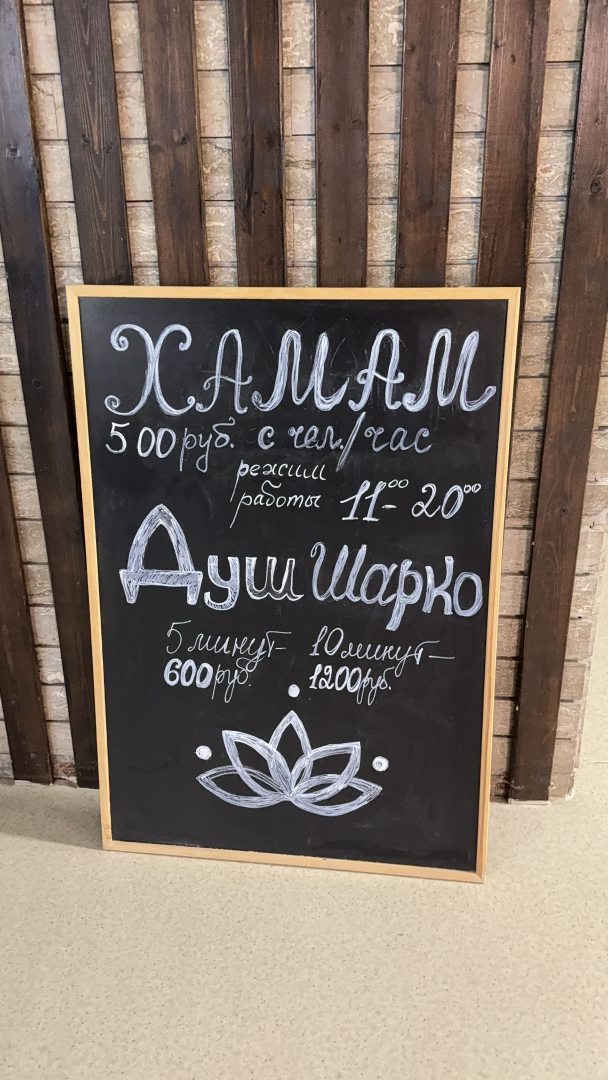 ХАМАМ
500 руб. с чел./час
режим
работы 11⁰⁰- 20⁰⁰
Душ Шарко
5 минут- 10 минут-
600 руб. 1200 руб.